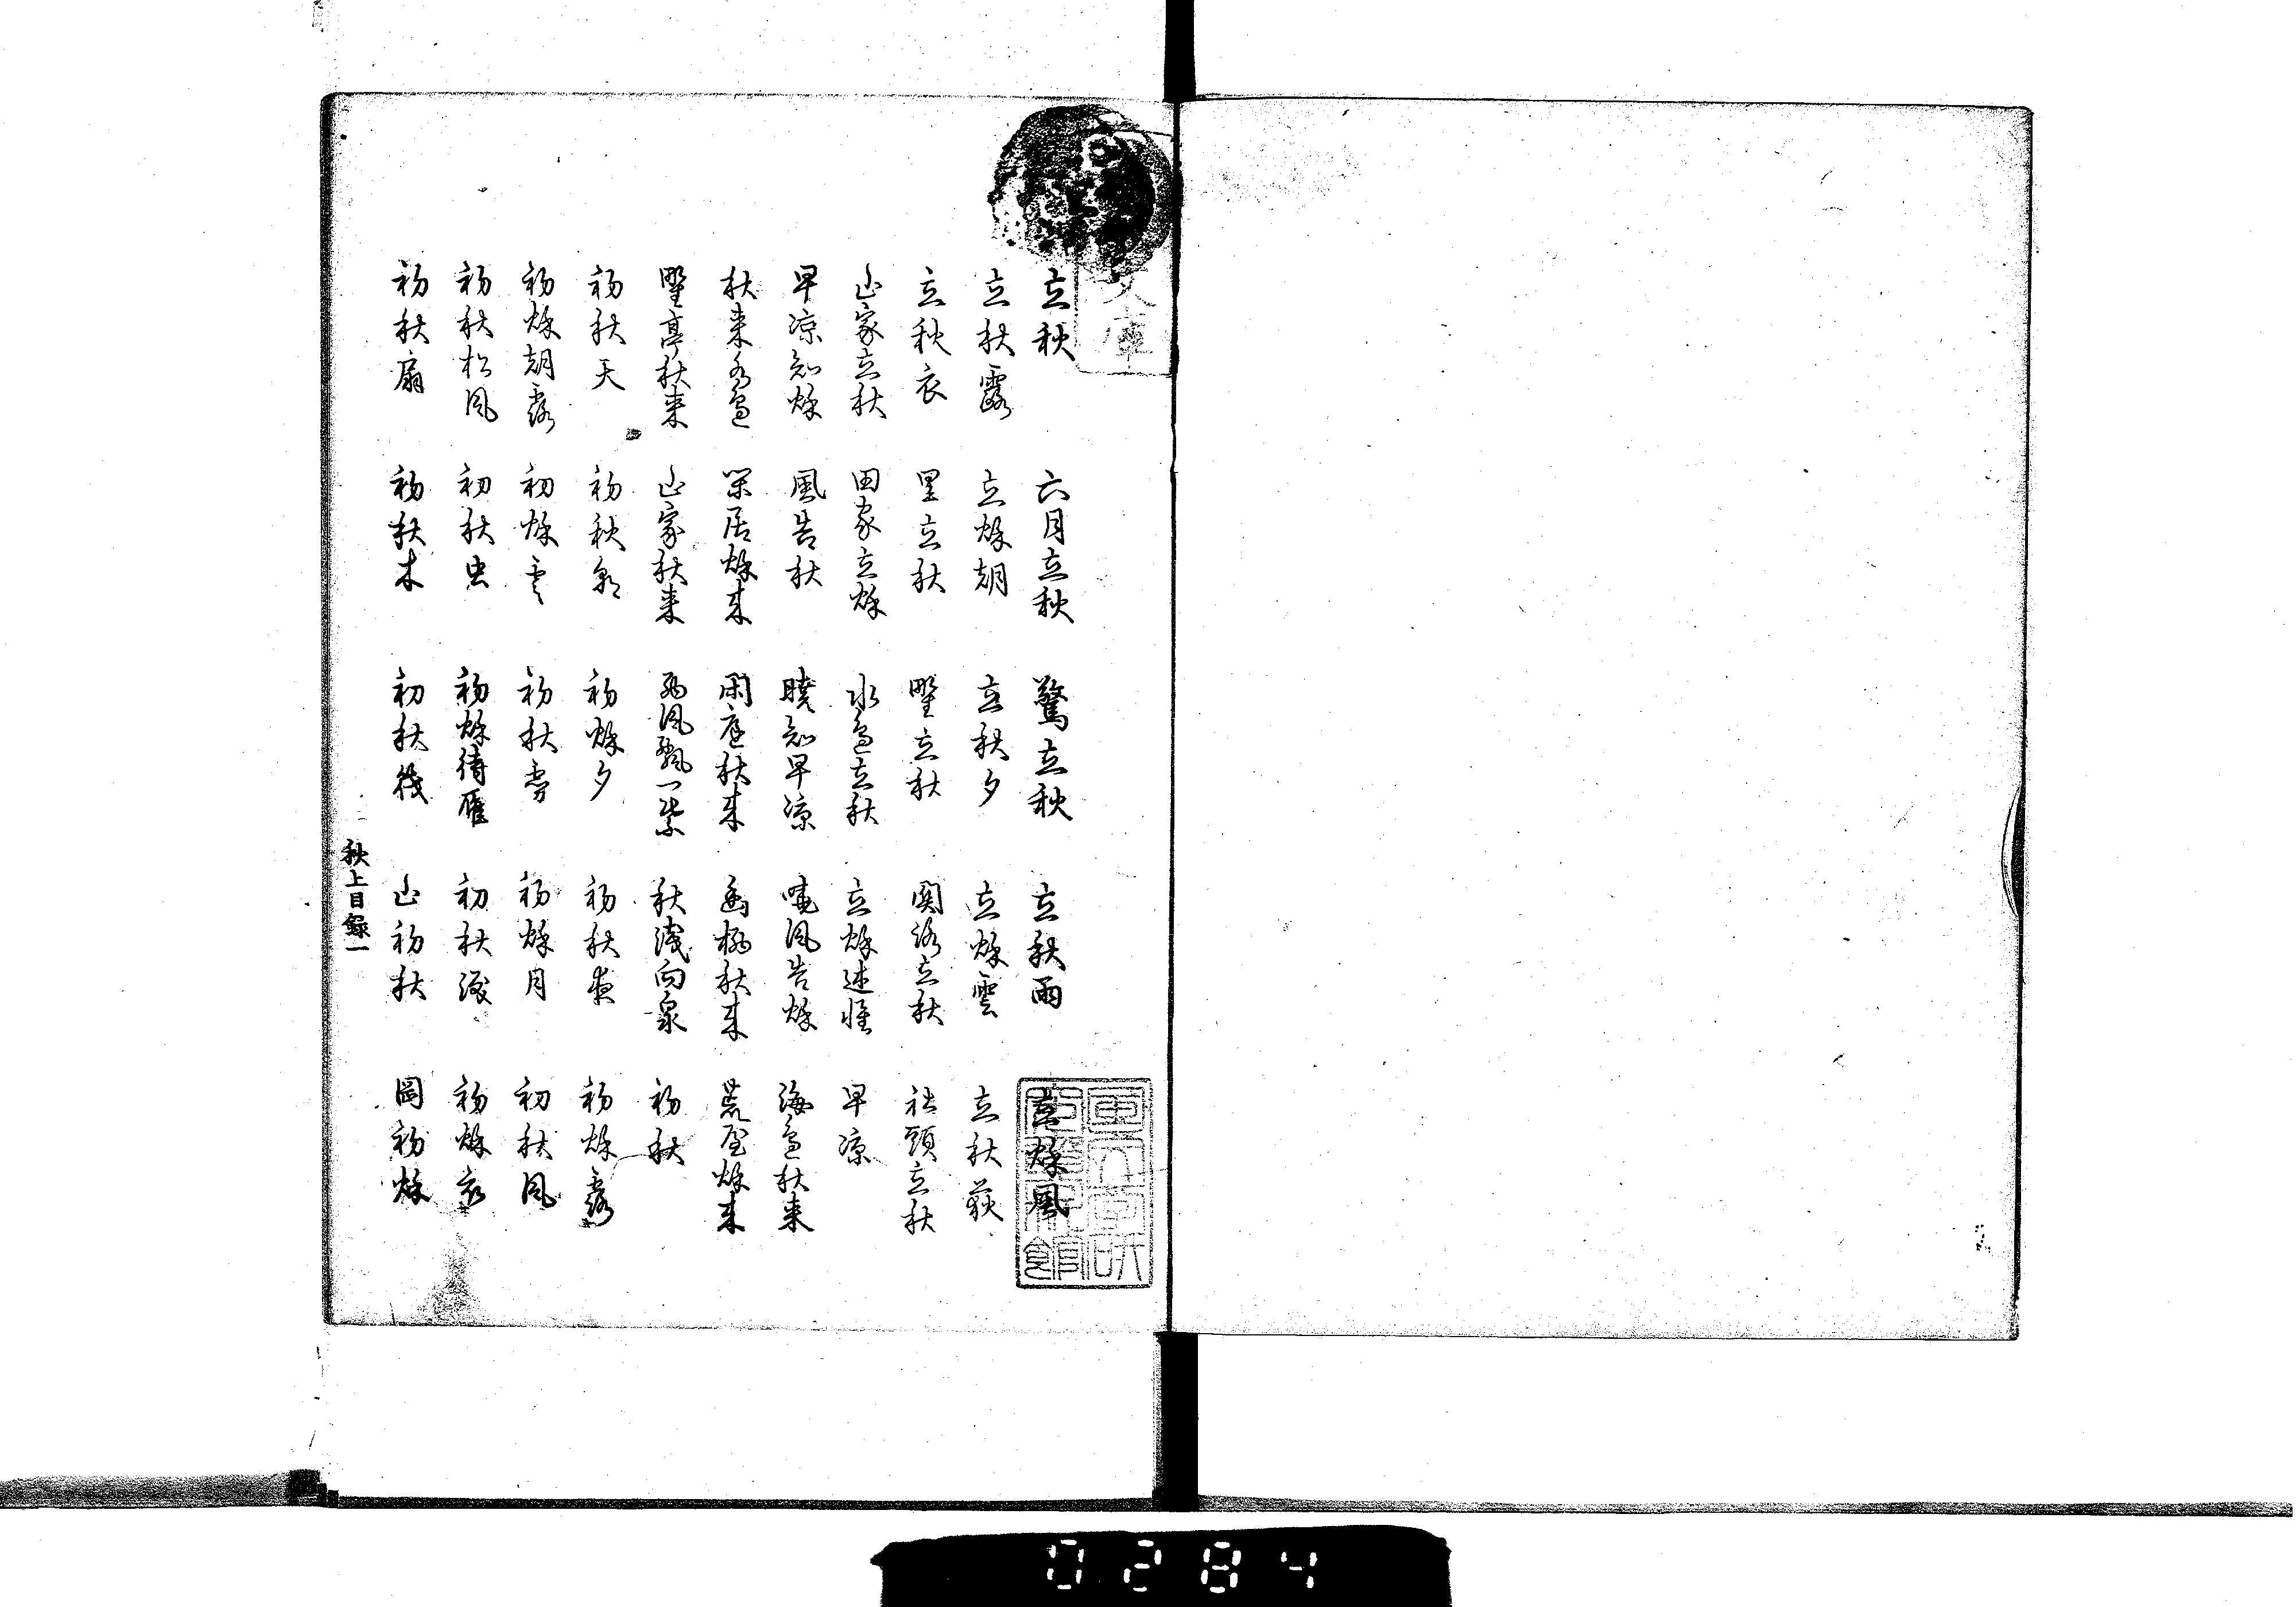 立秋 六月立秋 驚立秋 立秋雨 立秋風
立秋露 立秋朝 立秋夕 立秋雲 立秋荻
立秋衣 里立秋 野立秋 関路立秋 社頭立秋
山家立秋 田家立秋 水辺立秋 立秋述懐 早涼
早涼知秋 風告秋 暁知早涼 暁風告秋 海辺秋来
秋来水辺 閑居秋来 閑庭秋来 幽栖秋来 荒屋秋来
野亭秋来 山家秋来 西風飄一葉 秋浅向泉 初秋
初秋天 初秋朝 初秋夕 初秋夜 初秋露
初秋朝露 初秋雲 初秋雾 初秋月 初秋風
初秋松風 初秋虫 初秋待雁 初秋 初秋衣
初秋扇 初秋木 初秋後 山初秋 岡初秋
秋上目録一
文庫
0284